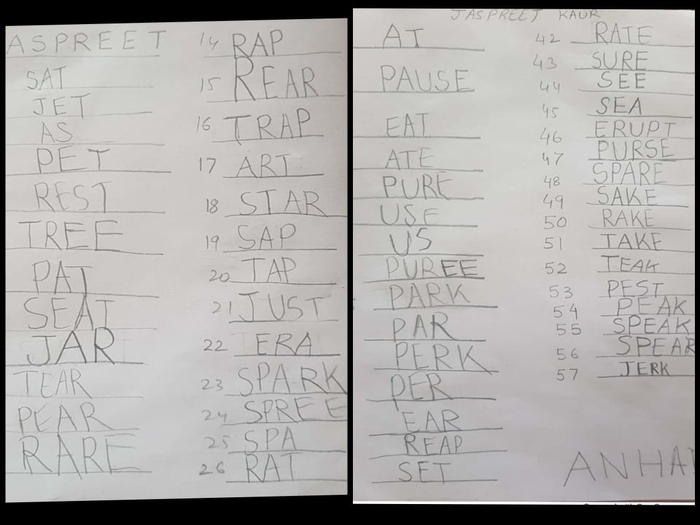 ASPREET
SAT
JET
AS
PET
REST
TREE
PAT
SEAT
JAR
TEAR
PEAR
RARE
14 RAP
15 REAR
16 TRAP
17 ART
18 STAR
19 SAP
20 TAP
21 JUST
22 ERA
23 SPARK
24 SPREE
25 SPA
26 RAT
JASPREET KAUR
AT
PAUSE
EAT
ATE
PURE
USE
US
PUREE
PARK
PAR
PERK
PER
EAR
REAP
SET
42 RATE
43 SURE
44 SEE
45 SEA
46 ERUPT
47 PURSE
48 SPARE
49 SAKE
50 RAKE
51 TAKE
52 TEAK
53 PEST
54 PEAK
55 SPEAK
56 SPEAR
57 JERK
ANHA